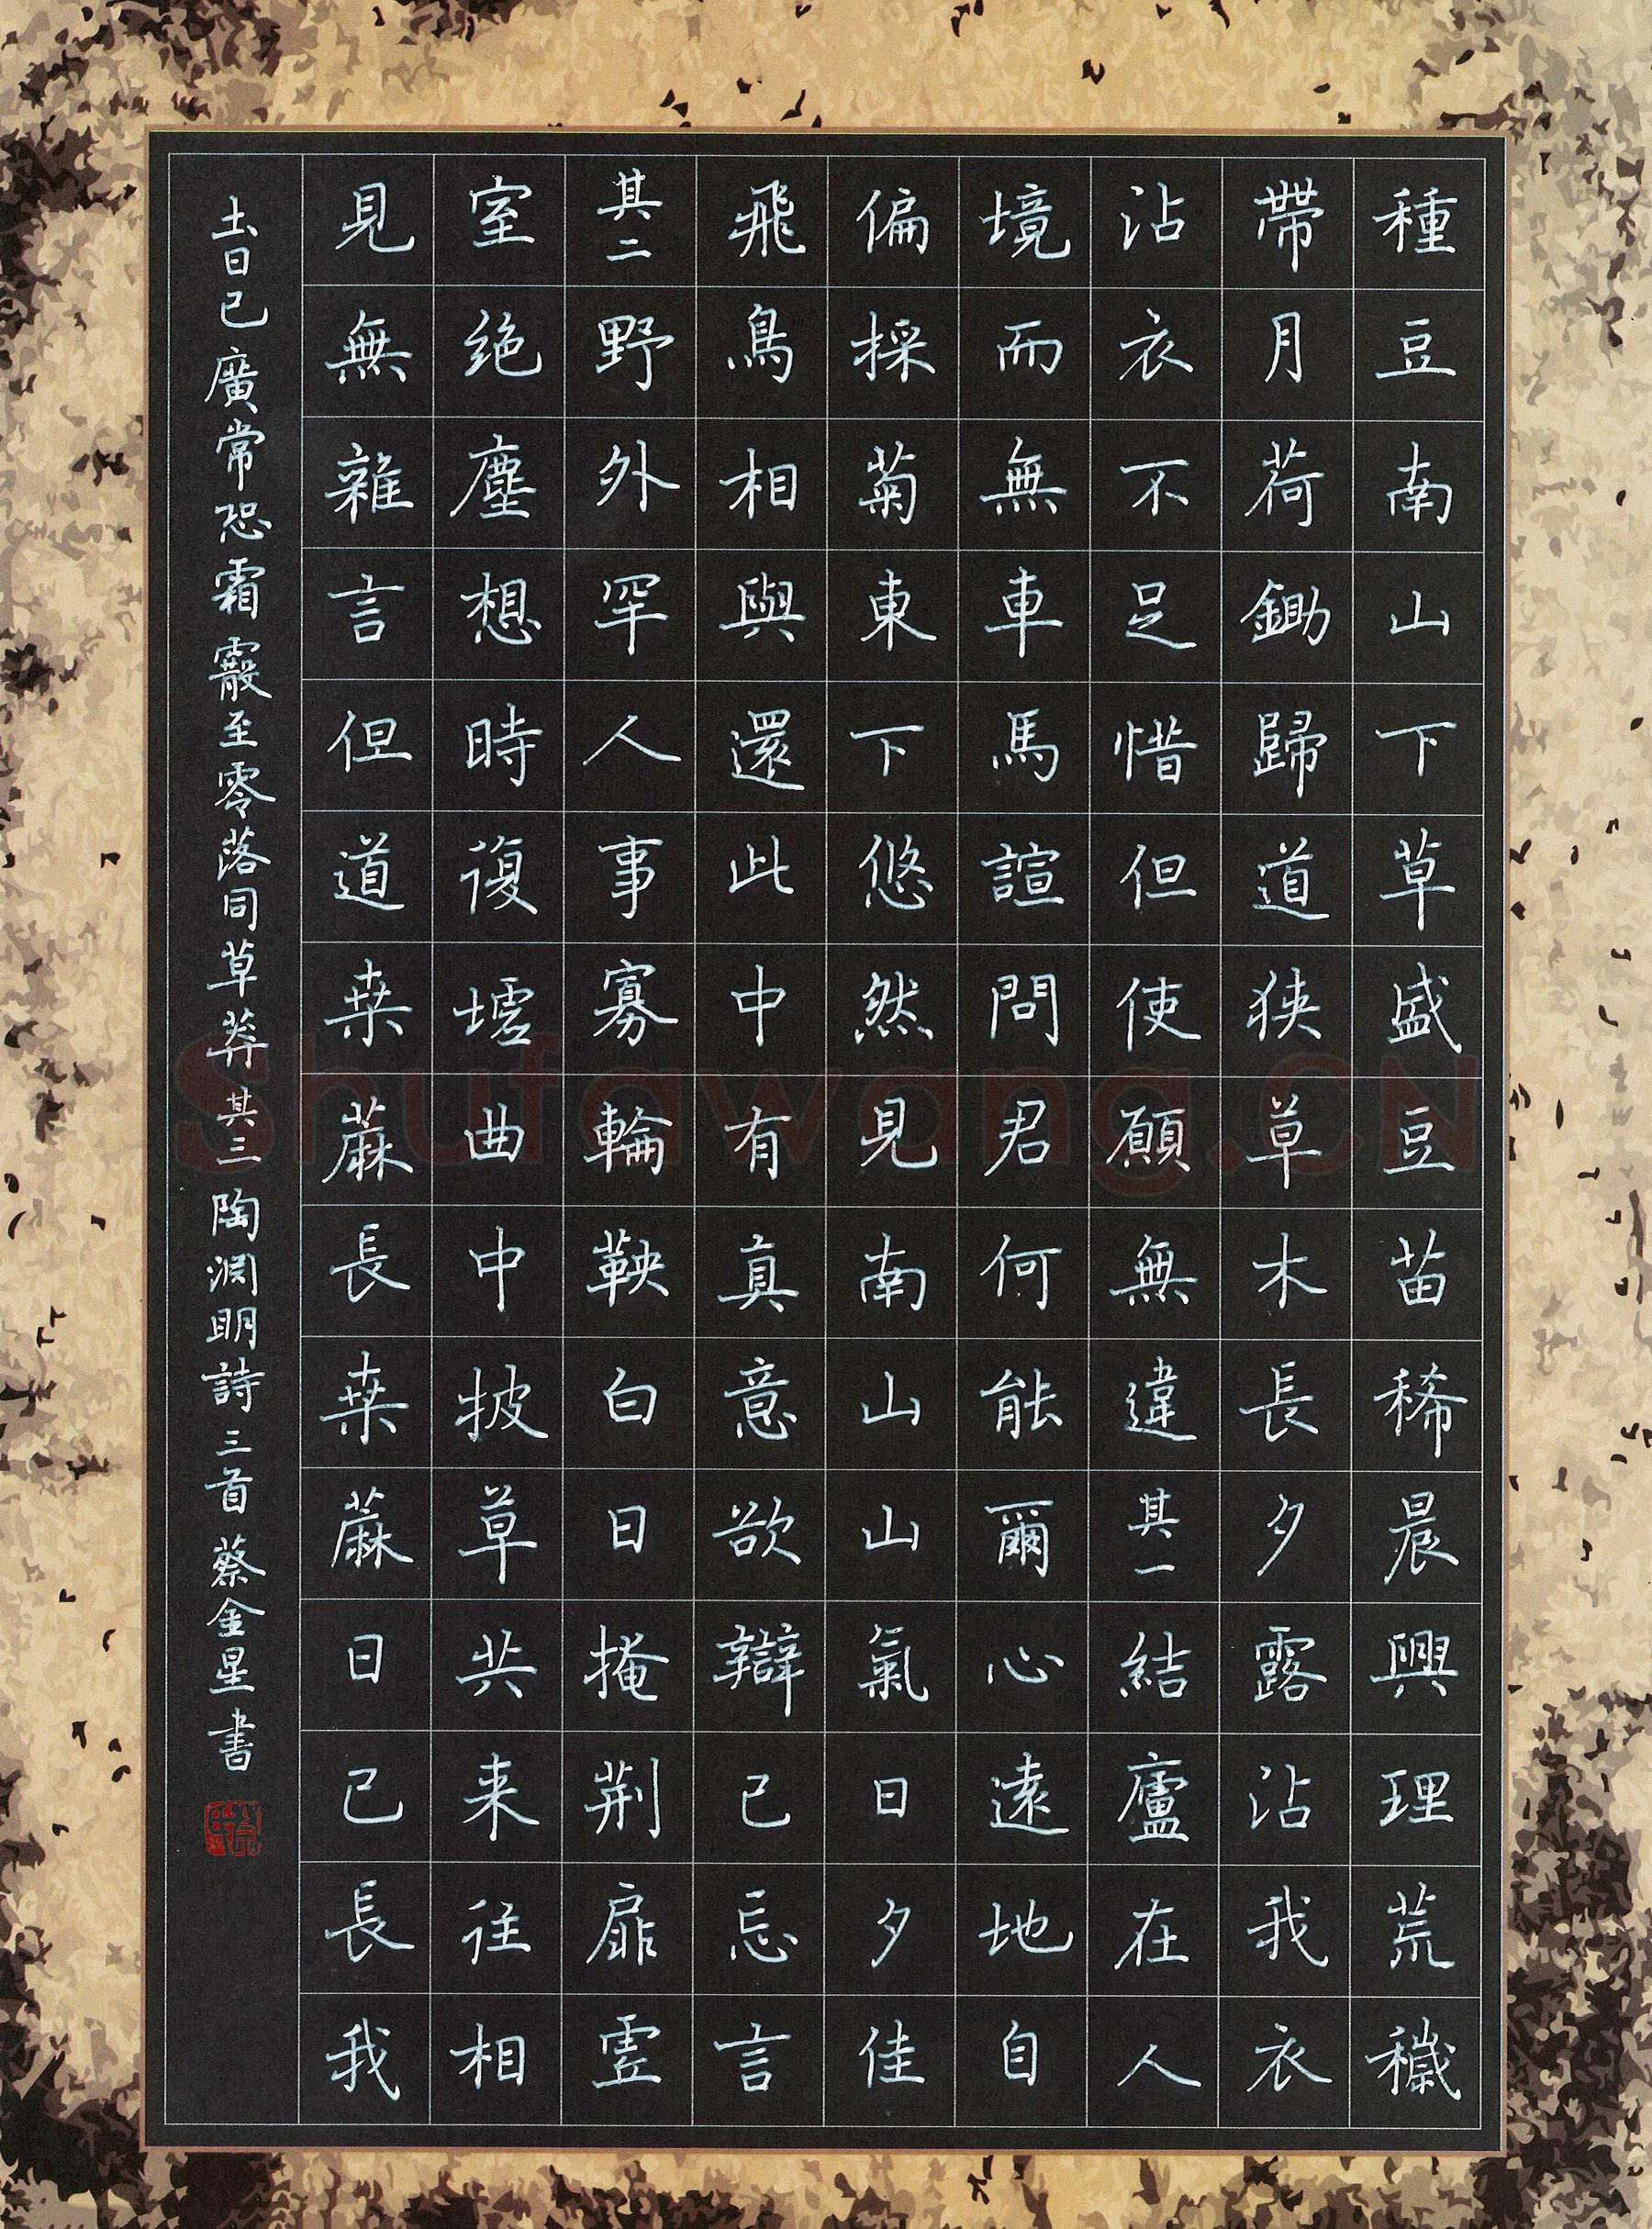 種豆南山下草盛豆苗稀晨興理荒穢
帶月荷鋤歸道狹草木長夕露沾我衣
沾衣不足惜但使願無違其一結廬在人
境而無車馬諠問君何能爾心遠地自
偏採菊東下悠然見南山山氣日夕佳
飛鳥相與還此中有真意欲辯已忘言
其二野外罕人事寡輪鞅白日掩荆扉虛
室絶塵想時復墟曲中披草共来往相
見無雜言但道桒蔴長桒蔴日已長我
土日已廣常恐霜霰至零落同草莽其三陶淵明詩三首蔡金星書
Shufawang.CN